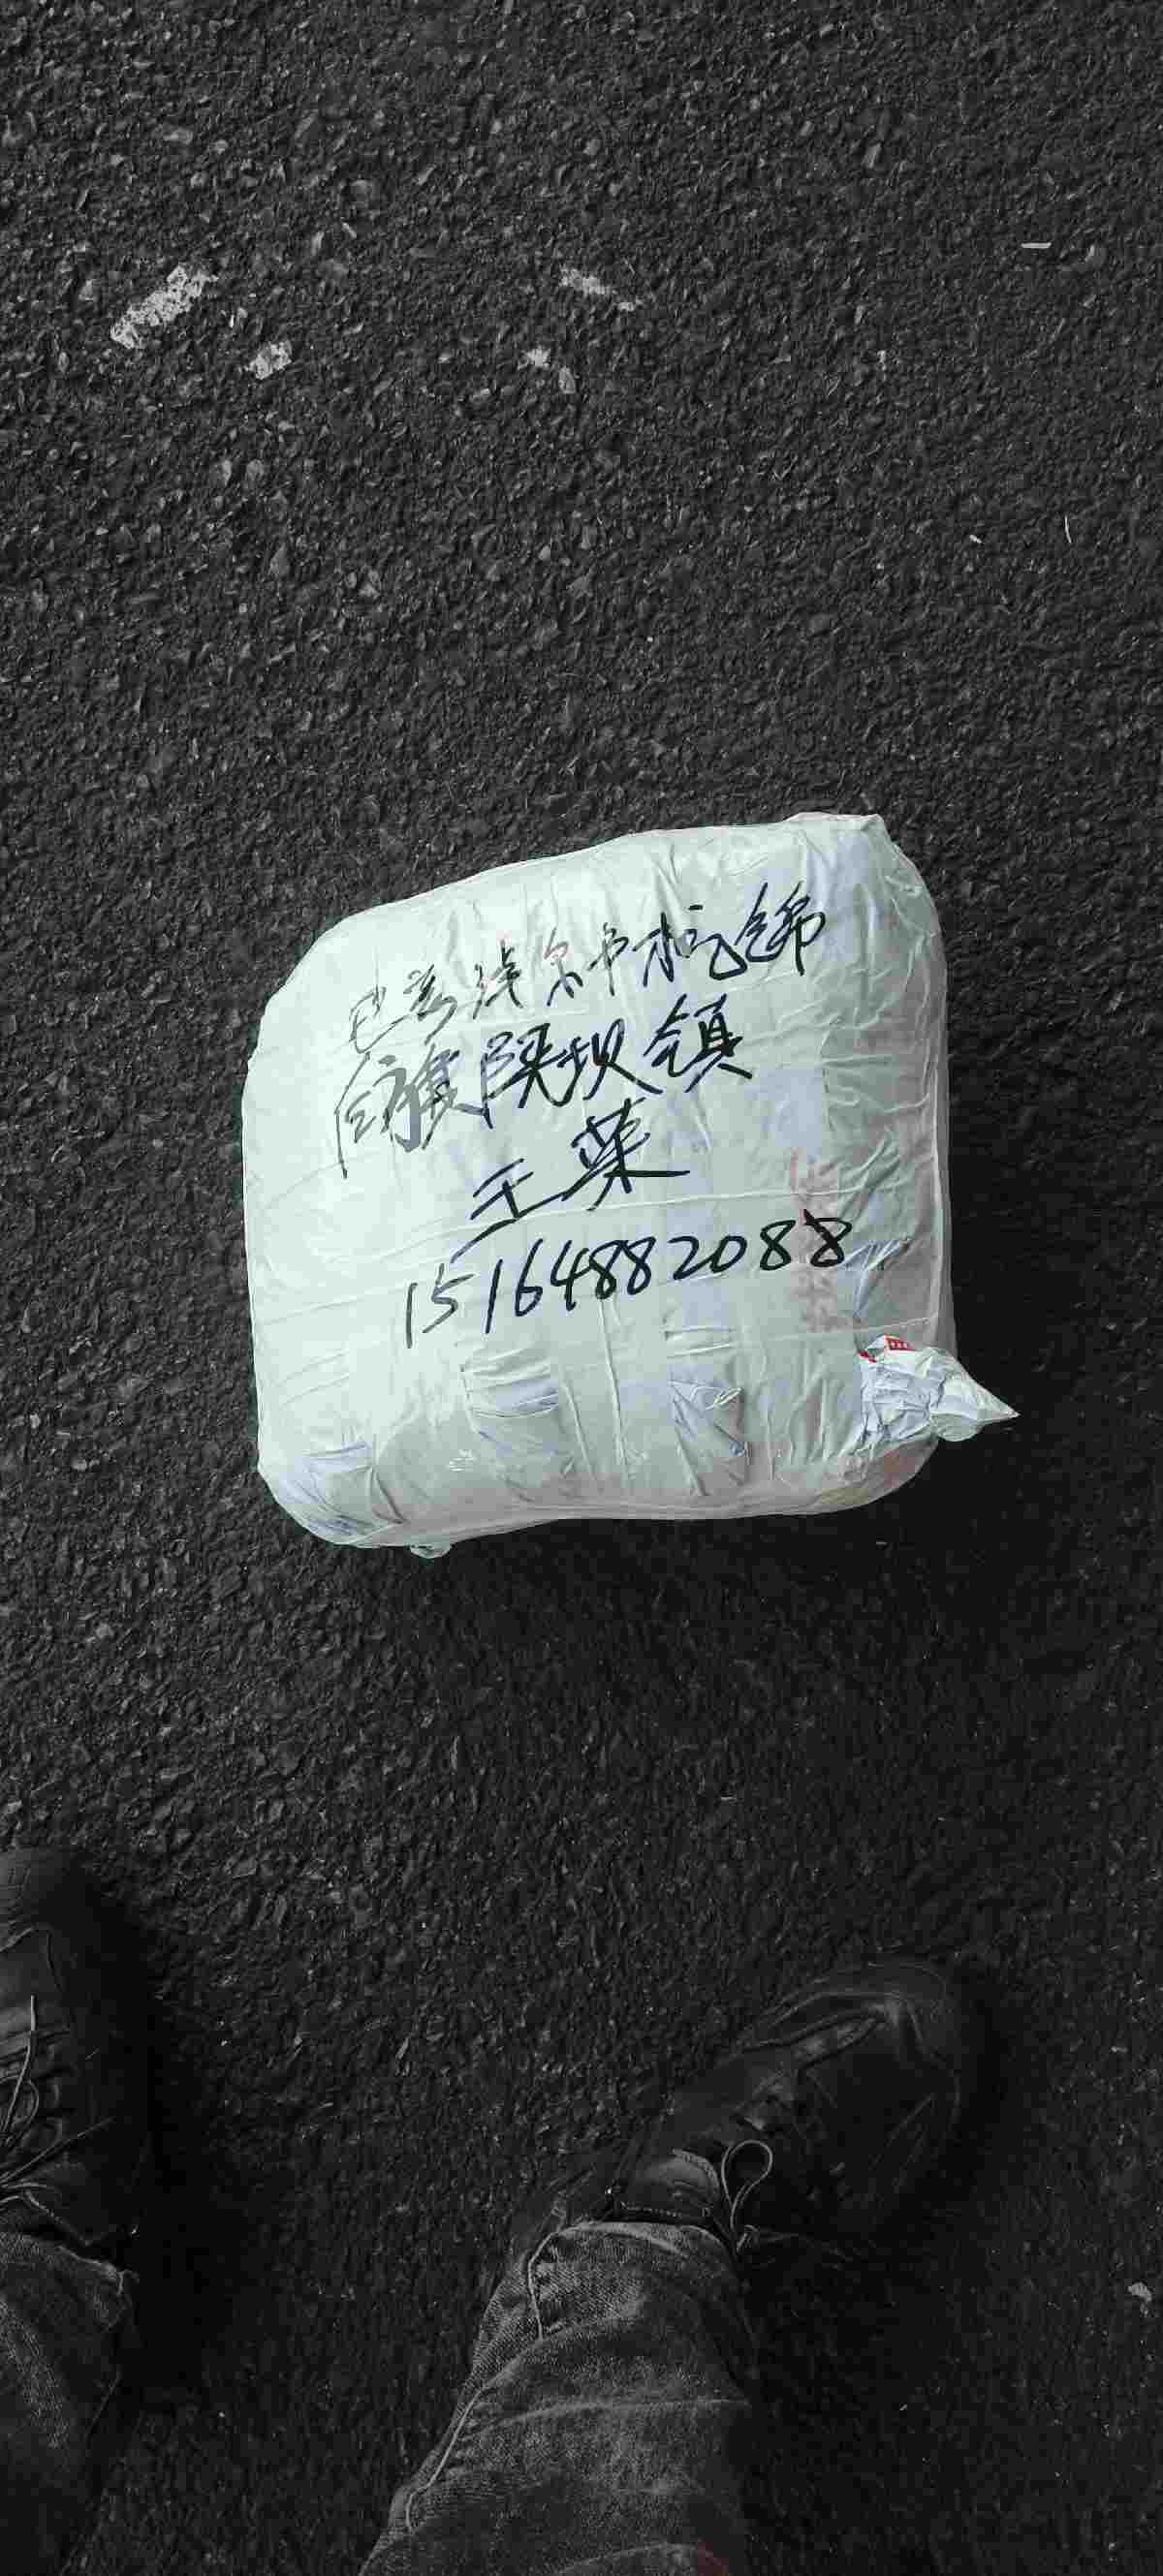 巴彦淖尔市杭锦
后旗陕坝镇
王英
15164882088